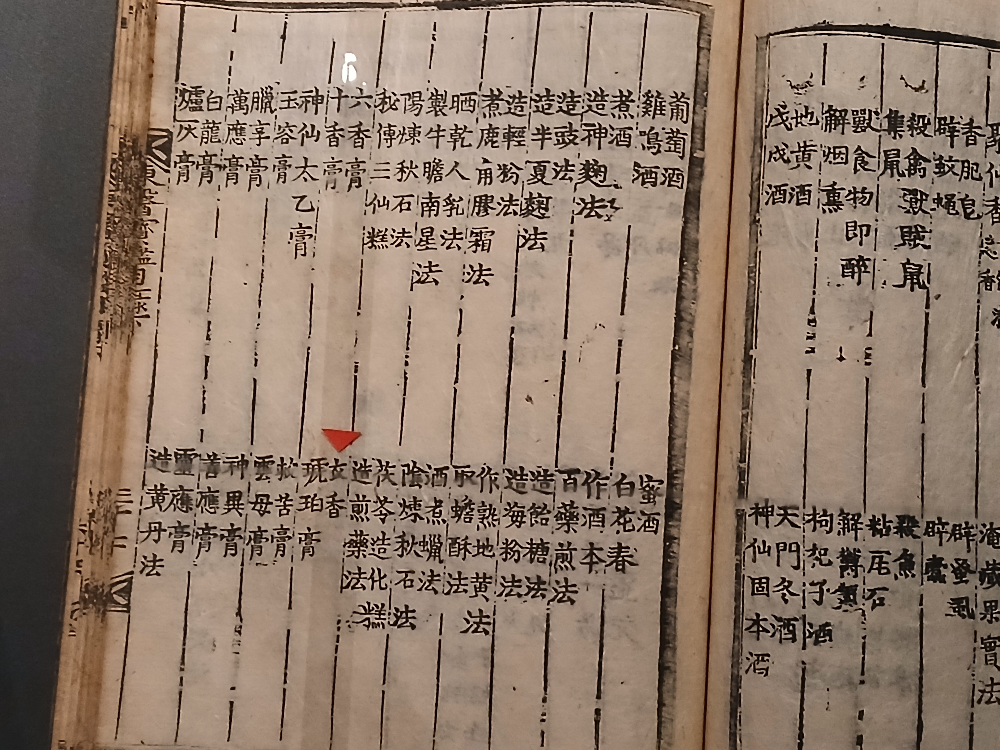 香肥皂
淹藏果實法
辟蚊蠅
辟壁虱
辟蠹
集鼠
獸食物即醉
粘瓦石
解烟熏
枸杞子酒
地黃酒
天門冬酒
戊戌酒
神仙固本酒
葡萄酒
蜜酒
雞鳴酒
白花春
煮酒
作酒本
造神麴法
百藥煎法
造豉法
造飴糖法
造半夏麴法
造海粉法
造輕粉法
作熟地黃法
煮鹿角膠霜法
取蟾酥法
晒乾人乳法
酒煮蠟法
製牛膽南星法
陰煉秋石法
陽煉秋石法
茯苓造化糕
秘傳三仙糕
造煎藥法
六香膏
衣香
十香膏
琥珀膏
神仙太乙膏
救苦膏
玉容膏
雲母膏
臘享膏
神異膏
萬應膏
善應膏
白龍膏
靈應膏
爐灰膏
造黃丹法